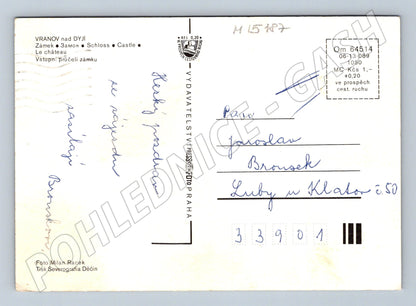 VRANOV nad DYJÍ
Zámek ● Замок ● Schloss ● Castle ●
Le château
Vstupní průčelí zámku
Hezký pozdrav
ze zájezdu
zasílají
Foto Milan
Tisk Severografia Děčín
VYDAVATELSTVÍ
PRAHA
M 15187
Om 64514
06-13 089
1090
MC Kčs 1,-
+0,20
ve prospěch
cest. ruchu
Pán
Jaroslav
Brousek
Luby u Klatov č. 50
33901
POHLEDNICE - GASH